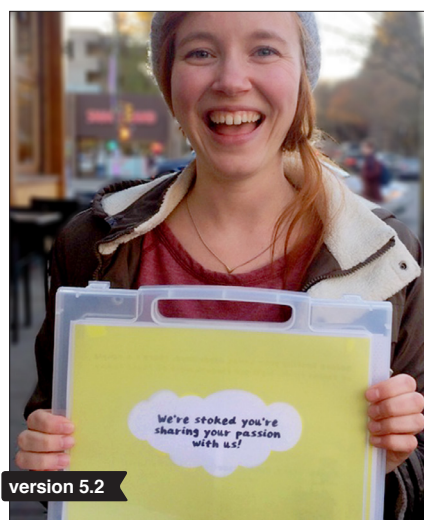 We're stoked you're
sharing your passion
with us!
version 5.2